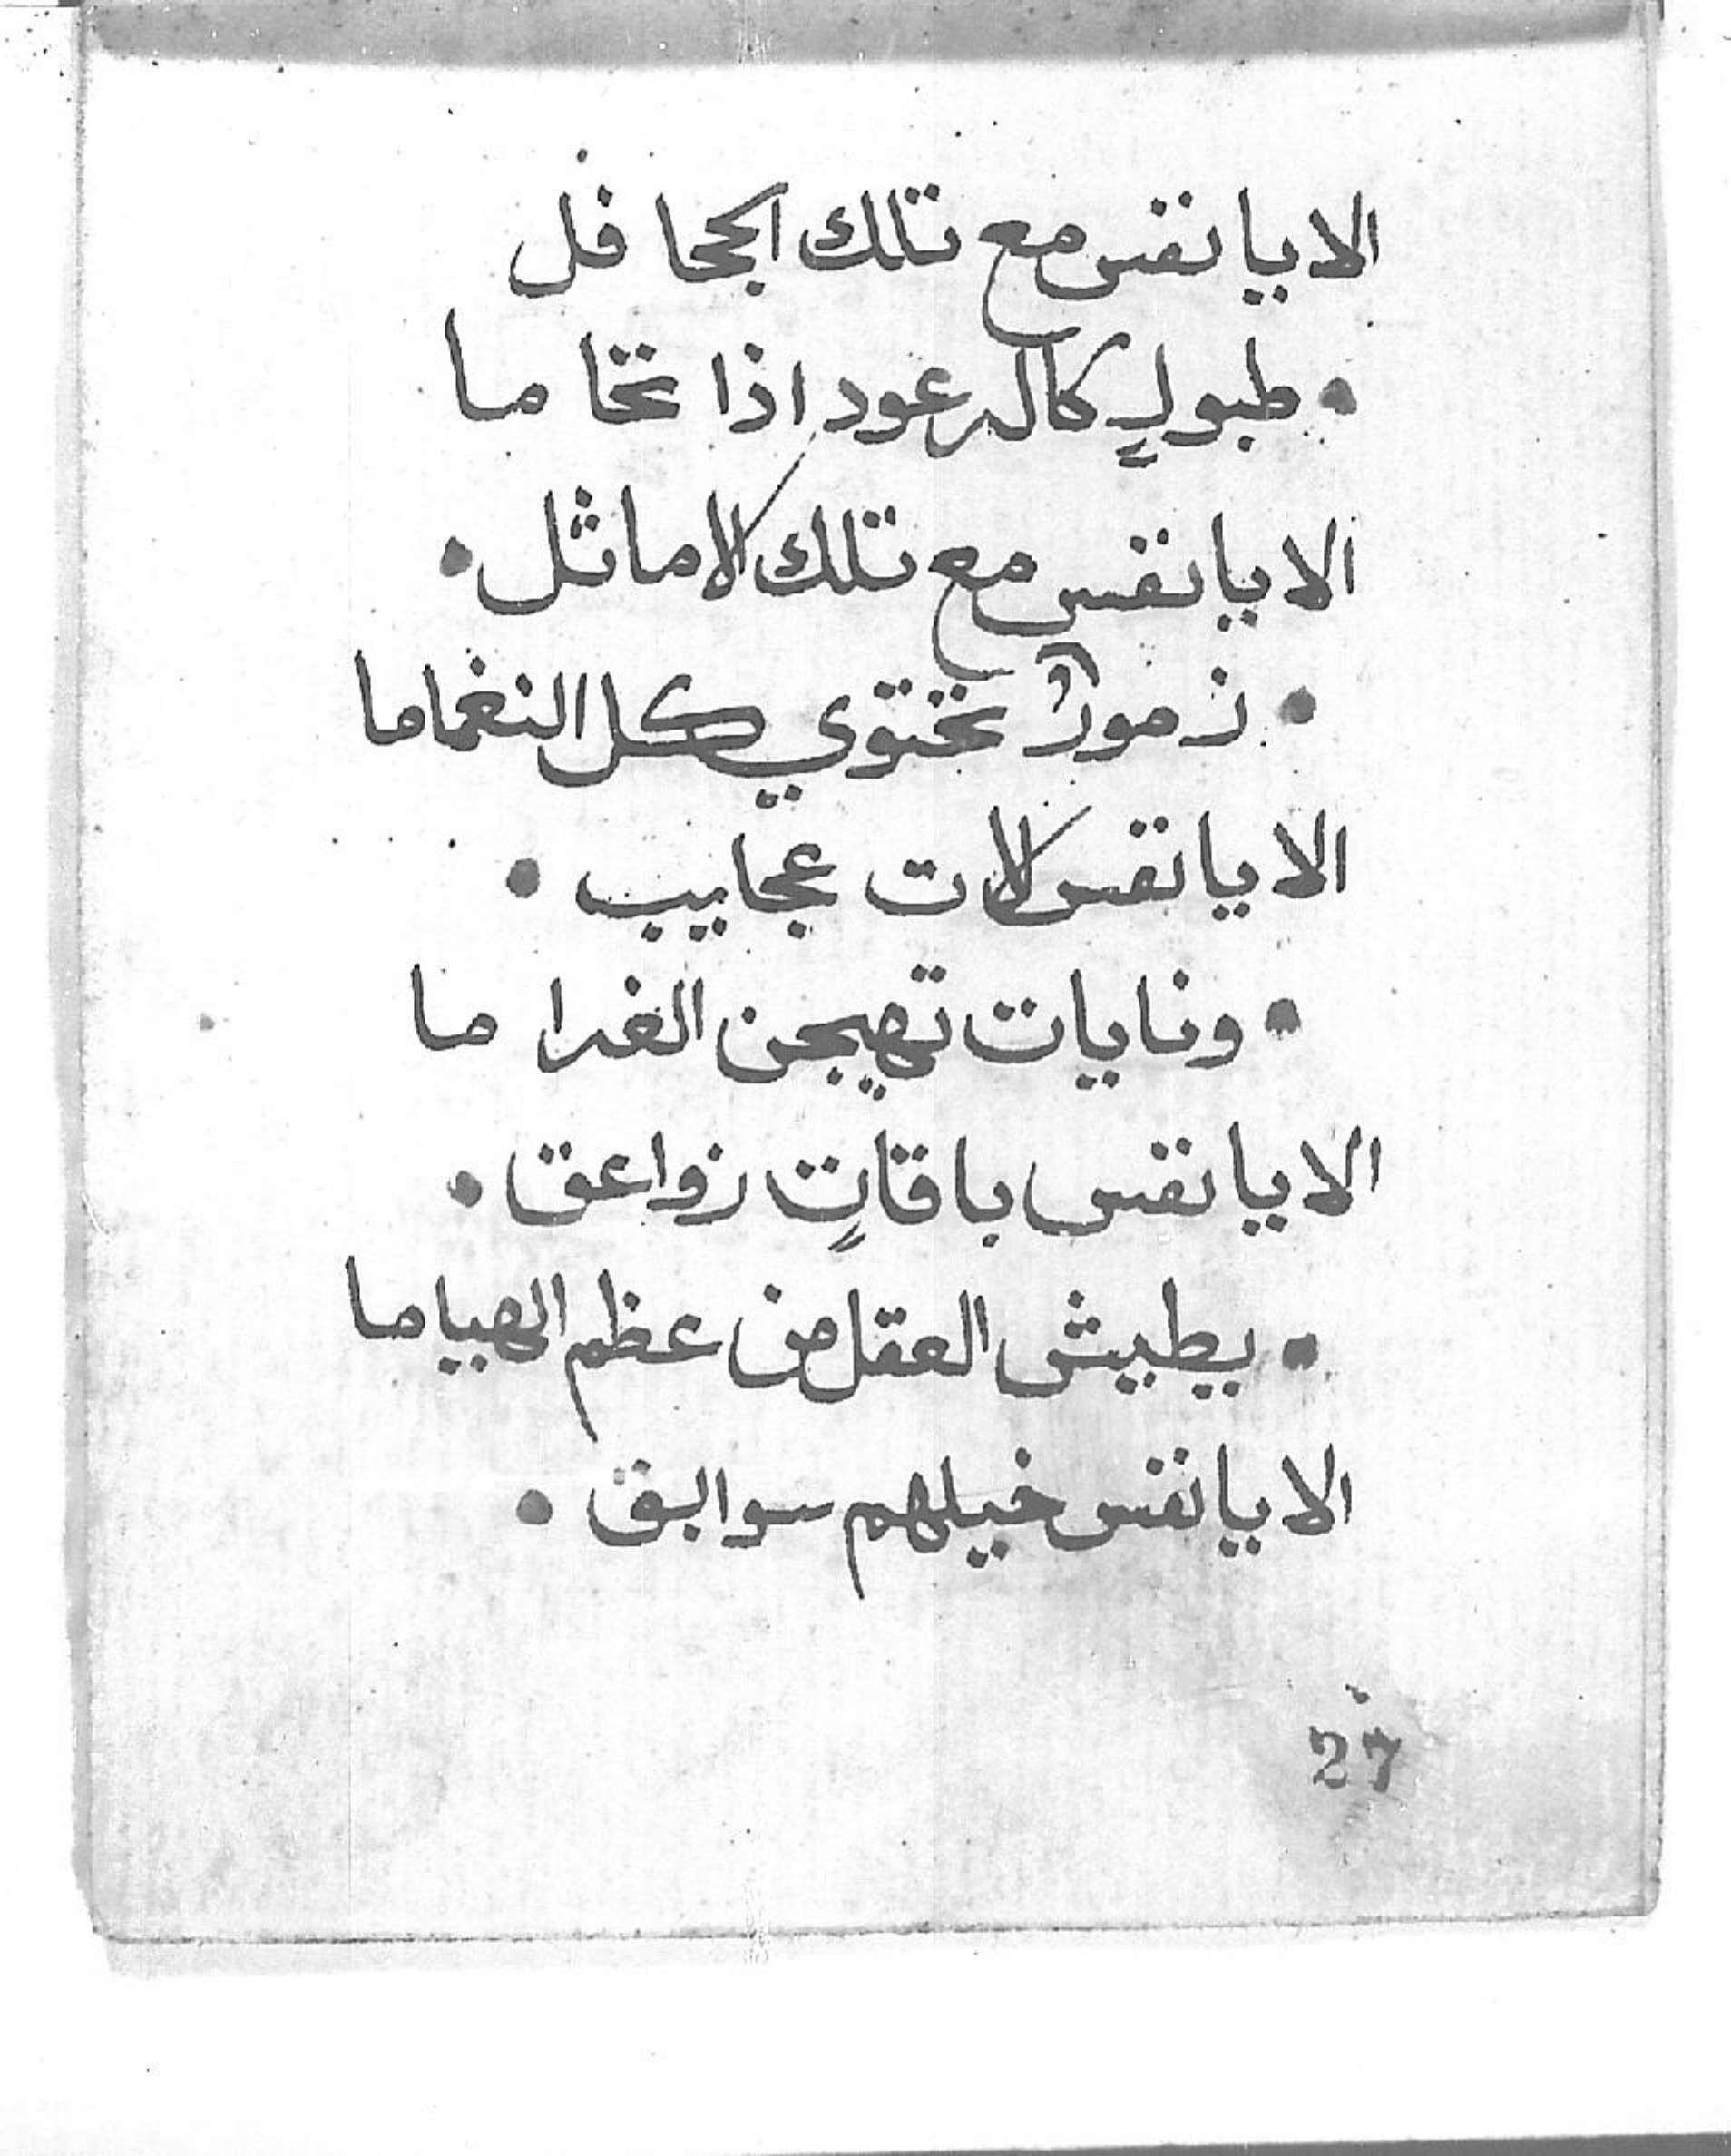 الا يا نفس مع تلك الجحافل
• طبولٍ كالرعود اذا تحاما
الا يا نفس مع تلك الاماثل •
• زمورٌ تحتوي كل النغماما
الا يا نفس لات عجايب •
• ونايات تهيجن الغراما
الا يا نفس باقاتٍ زواعق •
• يطيش العقل من عظم الهياما
الا يا نفس خيلهم سوابق •
27